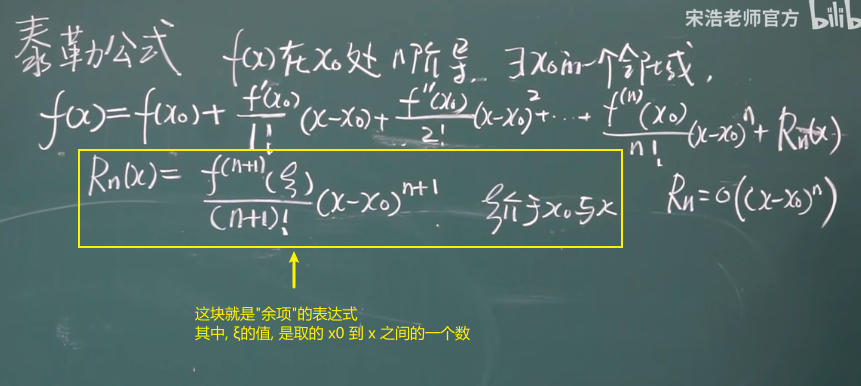 宋浩老师官方 bilib
泰勒公式 f(x)在x₀处n阶导 ∃x₀的一个邻域,
f(x)=f(x₀)+f'(x₀)/1!(x-x₀)+f''(x₀)/2!(x-x₀)²+…+f⁽ⁿ⁾(x₀)/n!(x-x₀)ⁿ+Rn(x)
Rn(x)=f⁽ⁿ⁺¹⁾(ξ)/(n+1)!(x-x₀)ⁿ⁺¹ ξ介于x₀与x
Rn=o((x-x₀)ⁿ)
这块就是"余项"的表达式
其中, ξ的值, 是取的 x0 到 x 之间的一个数